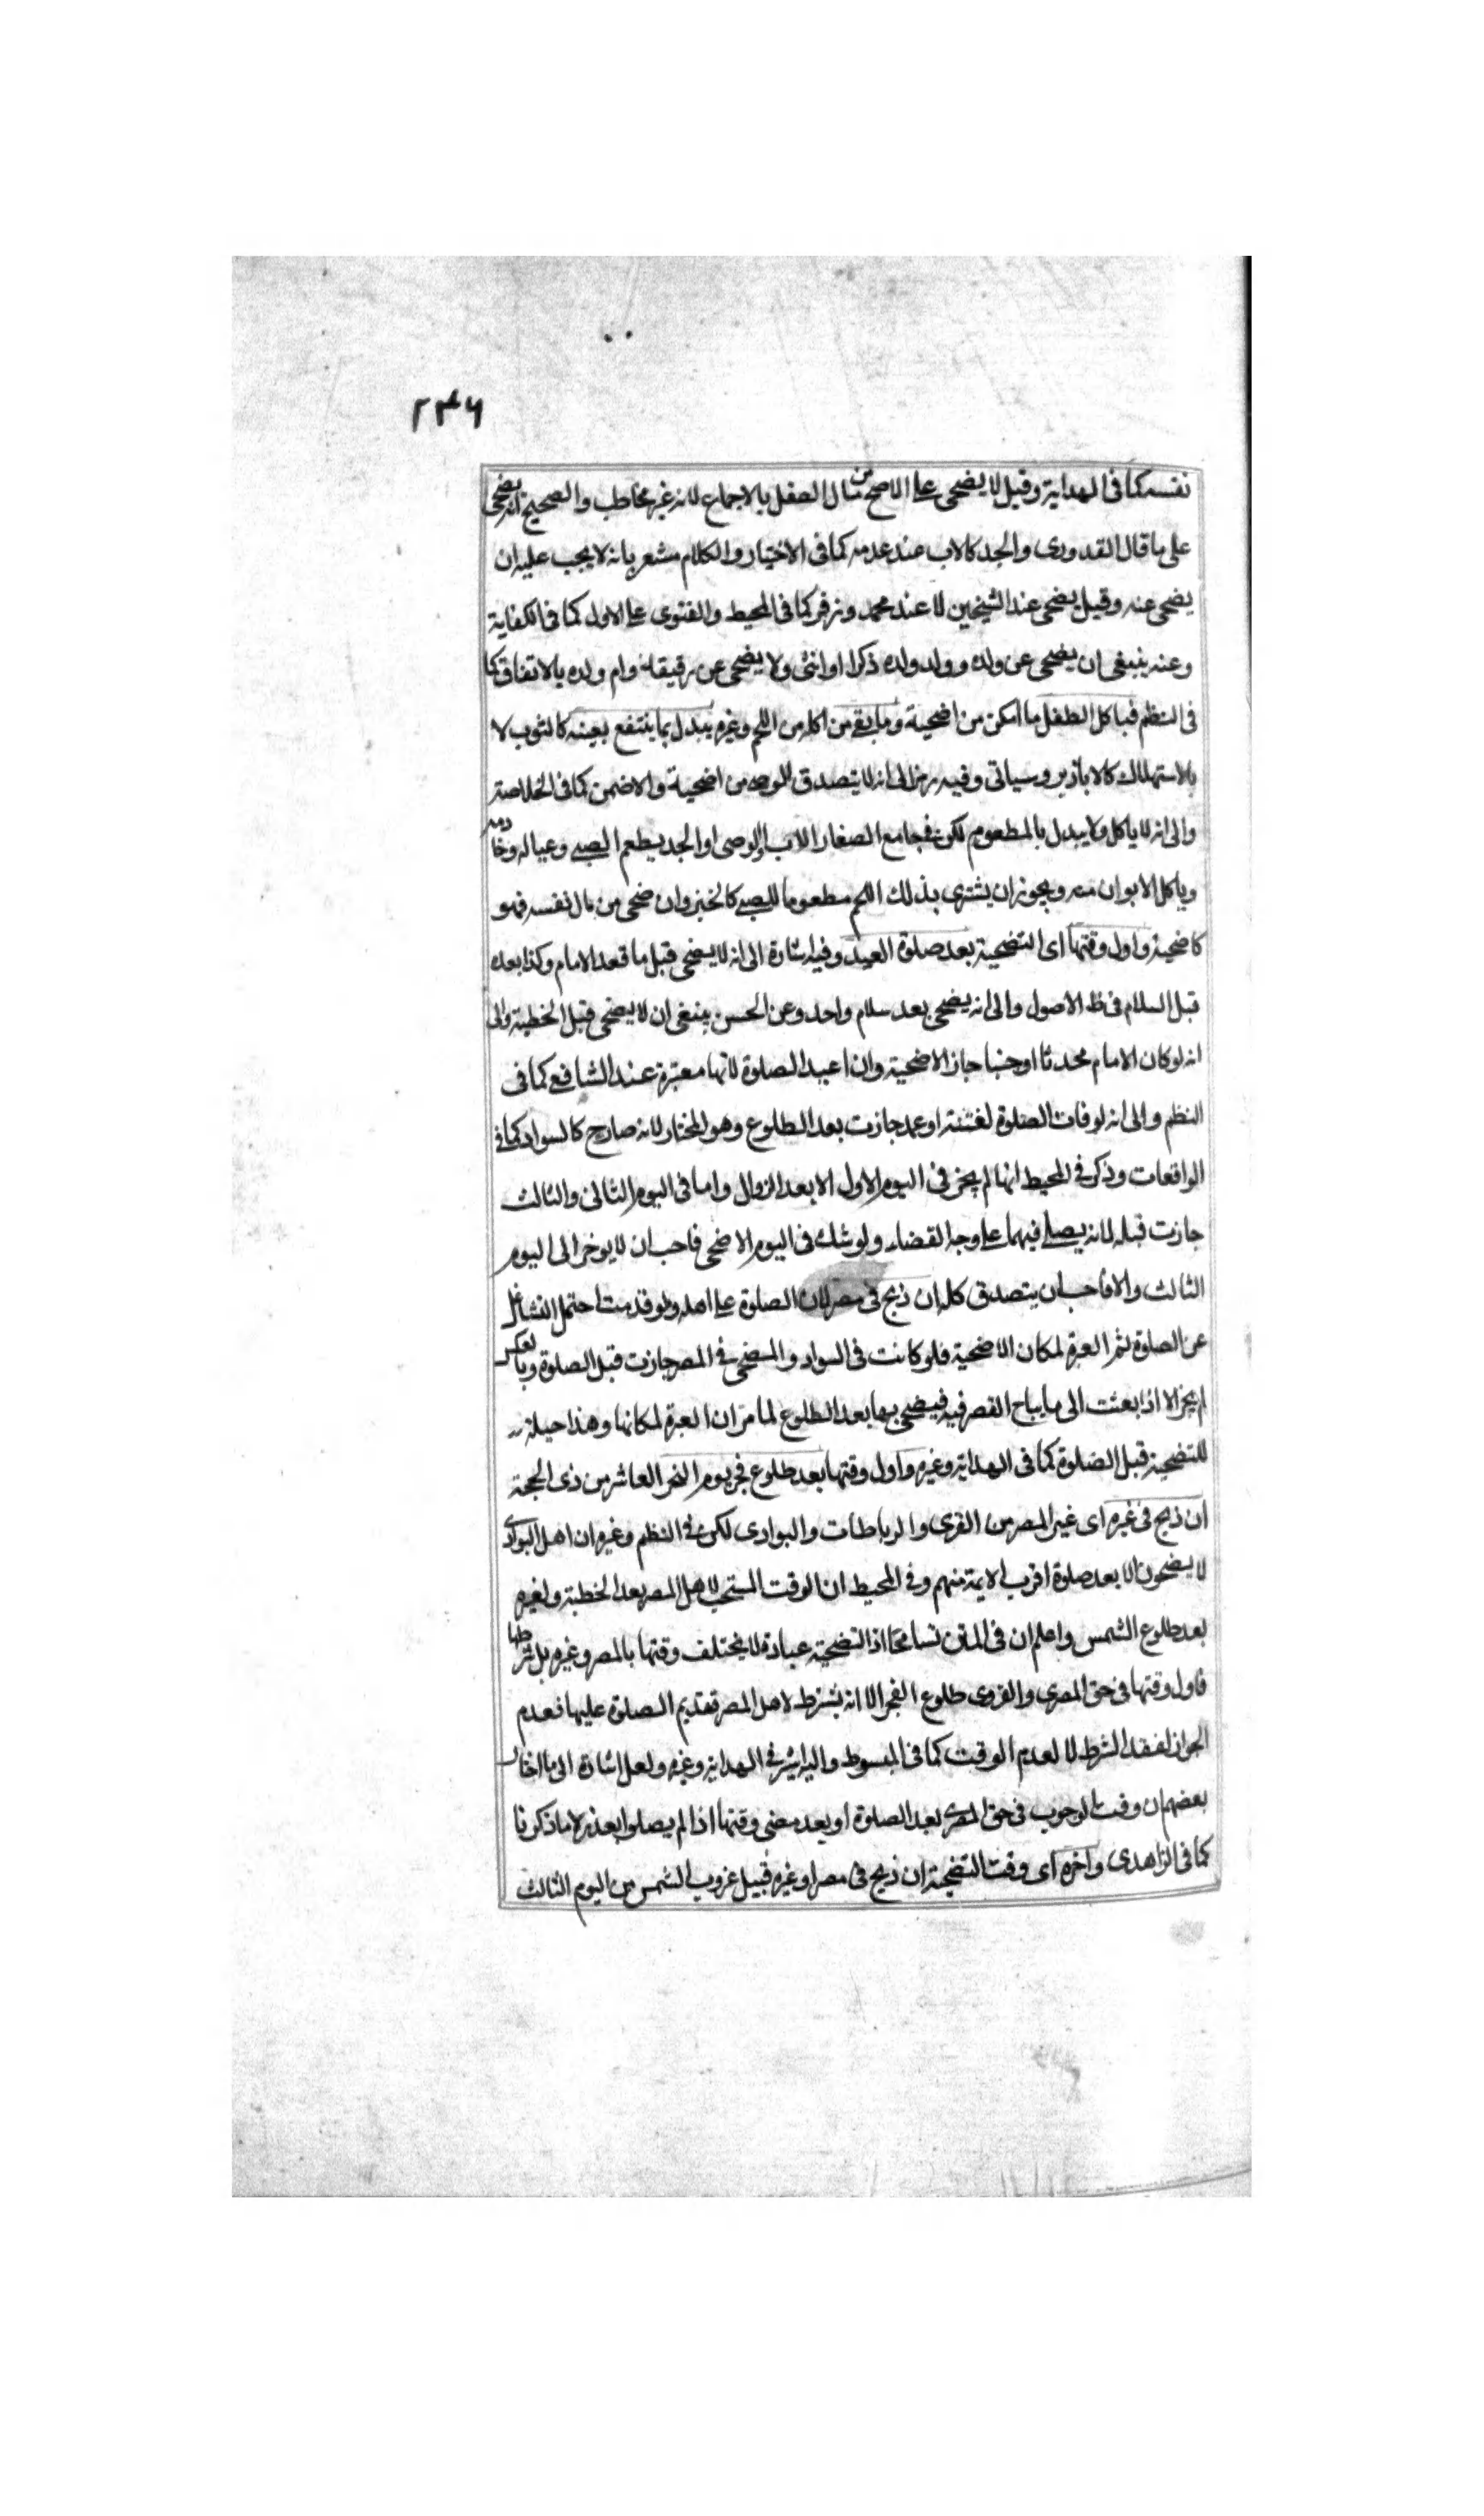 ٢٣٦
نفسه كما فى الهداية وقيل لا يضحى على الاصح من مال الطفل بالاجماع لانه غير مخاطب والصحيح انه يضحى
على ما قال القدورى والجد كالاب عند عدمه كما فى الاختيار والكلام مشعر بانه لا يجب عليه ان
يضحى عنه وقيل يضحى عند الشيخين لا عند محمد وزفر كما فى المحيط والفتوى على الاول كما فى الكفاية
وعنه ينبغى ان يضحى عن ولده وولد ولده ذكرا او انثى ولا يضحى عن رقيقه وام ولده بالاتفاق كما
فى النظم فياكل الطفل ما امكن من اضحية وما بقى من اكله من اللحم وغيره يبدل بما ينتفع بعينه كالثوب لا
بالاستهلاك كالابازير وسياتى وفيه رمز الى انه لا يتصدق الوصى من اضحية والا ضمن كما فى الخلاصة
والى انه لا ياكل ولا يبدل بالمطعوم لكن فى جامع الصغار الاب او الوصى او الجد يطعم الصبى وعياله وخادمه
وياكل الابوان منه ويجوز ان يشترى بذلك اللحم مطعوما للصبى كالخبز وان ضحى من مال نفسه فهو
كاضحية واول وقتها اى التضحية بعد صلوة العيد وفيه اشارة الى انه لا يضحى قبل ما قعد الامام وكذا بعده
قبل السلام فى ظ الاصول والى انه يضحى بعد سلام واحد وعن الحسن ينبغى ان لا يضحى قبل الخطبة والى
انه لو كان الامام محدثا او جنبا جاز الاضحية وان اعيد الصلوة لانها معتبرة عند الشافعى كما فى
النظم والى انه لو فات الصلوة لفتنة او عمد جازت بعد الطلوع وهو المختار لانه صارح كالسواد كما فى
الواقعات وذكر فى المحيط انها لم يجز فى اليوم الاول الا بعد الزوال واما فى اليوم الثانى والثالث
جازت قبله لانه يصلى فيهما على وجه القضاء ولو شك فى اليوم الاضحى فاحب ان لا يوخر الى اليوم
الثالث والا فاحب ان يتصدق كله ان ذبح فى مصر لان الصلوة على اهله ولو قدمت احتمل التشاغل
عن الصلوة ثم العبرة لمكان الاضحية فلو كانت فى السواد والمضحى فى المصر جازت قبل الصلوة وبالعكس
لم يجز الا اذا بعثت الى ما يباح القصر فيه فيضحى بها بعد الطلوع لما مر ان العبرة لمكانها وهذا حيلة
للتضحية قبل الصلوة كما فى الهداية وغيره واول وقتها بعد طلوع فجر يوم النحر العاشر من ذى الحجة
ان ذبح فى غيره اى غير المصر من القرى والرباطات والبوادى لكن فى النظم وغيره ان اهل البوادى
لا يضحون الا بعد صلوة اقرب الايمة منهم وفى المحيط ان الوقت المستحب لاهل المصر بعد الخطبة ولغيره
بعد طلوع الشمس واعلم ان فى المتن تسامحا اذ التضحية عبادة لا يختلف وقتها بالمصر وغيره بل شرطها
فاول وقتها فى حق المصرى والقروى طلوع الفجر الا انه يشترط لاهل المصر تقديم الصلوة عليها فعدم
الجواز لفقد الشرط لا لعدم الوقت كما فى المبسوط واليه اشير فى الهداية وغيره ولعل اشارة الى ما اختار
بعضهم ان وقت الوجوب فى حق المصرى بعد الصلوة او بعد مضى وقتها اذا لم يصلوا بعذر لا ما ذكرنا
كما فى الزاهدى وآخره اى وقت التضحية ان ذبح فى مصر او غيره قبيل غروب الشمس من اليوم الثالث